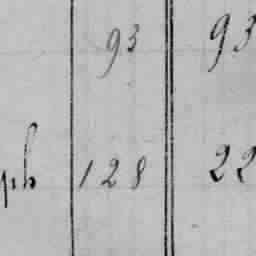 93 93
128 22